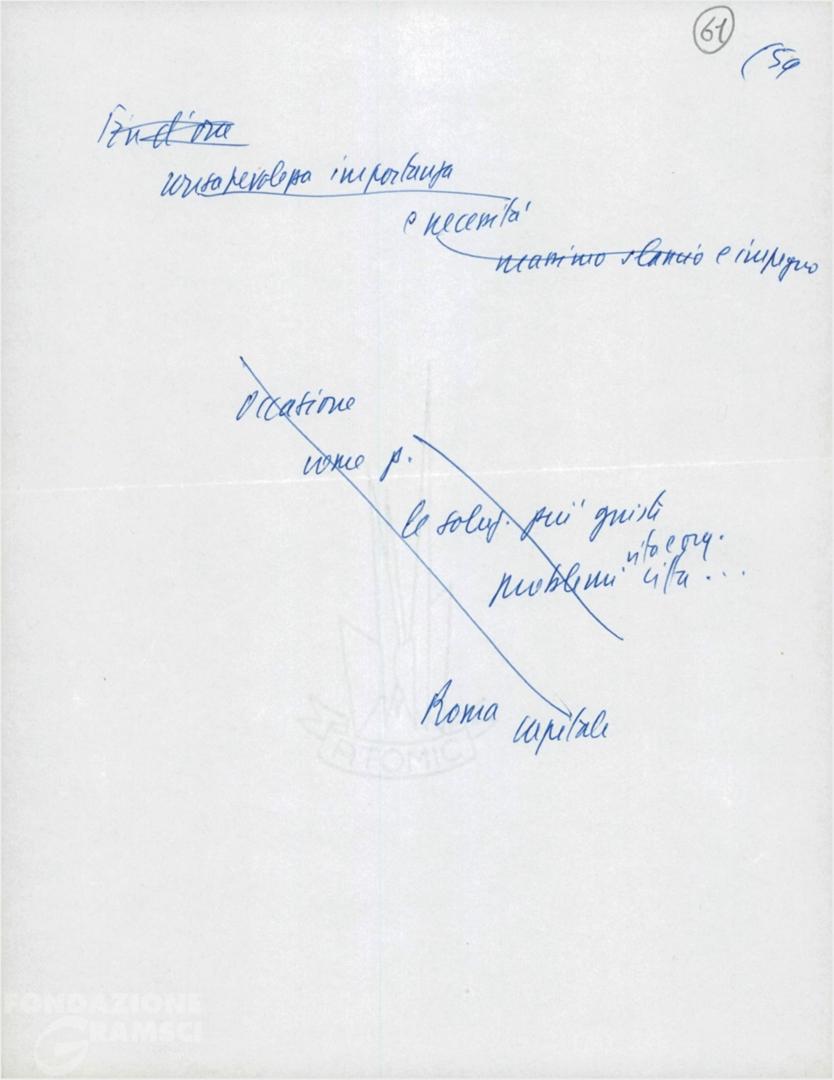 61
(59
Fin d'ora
consapevolezza importanza
e necessità
massimo slancio e impegno
Occasione
come p.
le soluz. più giuste
vita e org.
problemi città ...
Roma capitale
ATOMIC
FONDAZIONE
GRAMSCI